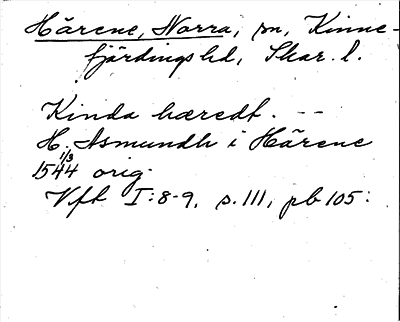 Härene, Norra, sn, Kinne-
fjärdings hd, Skar. l.
Kinda hæredt. --
H. Asmundh i Härene
1544 1/3 orig.
Vft I:8-9, s. 111, pb 105: